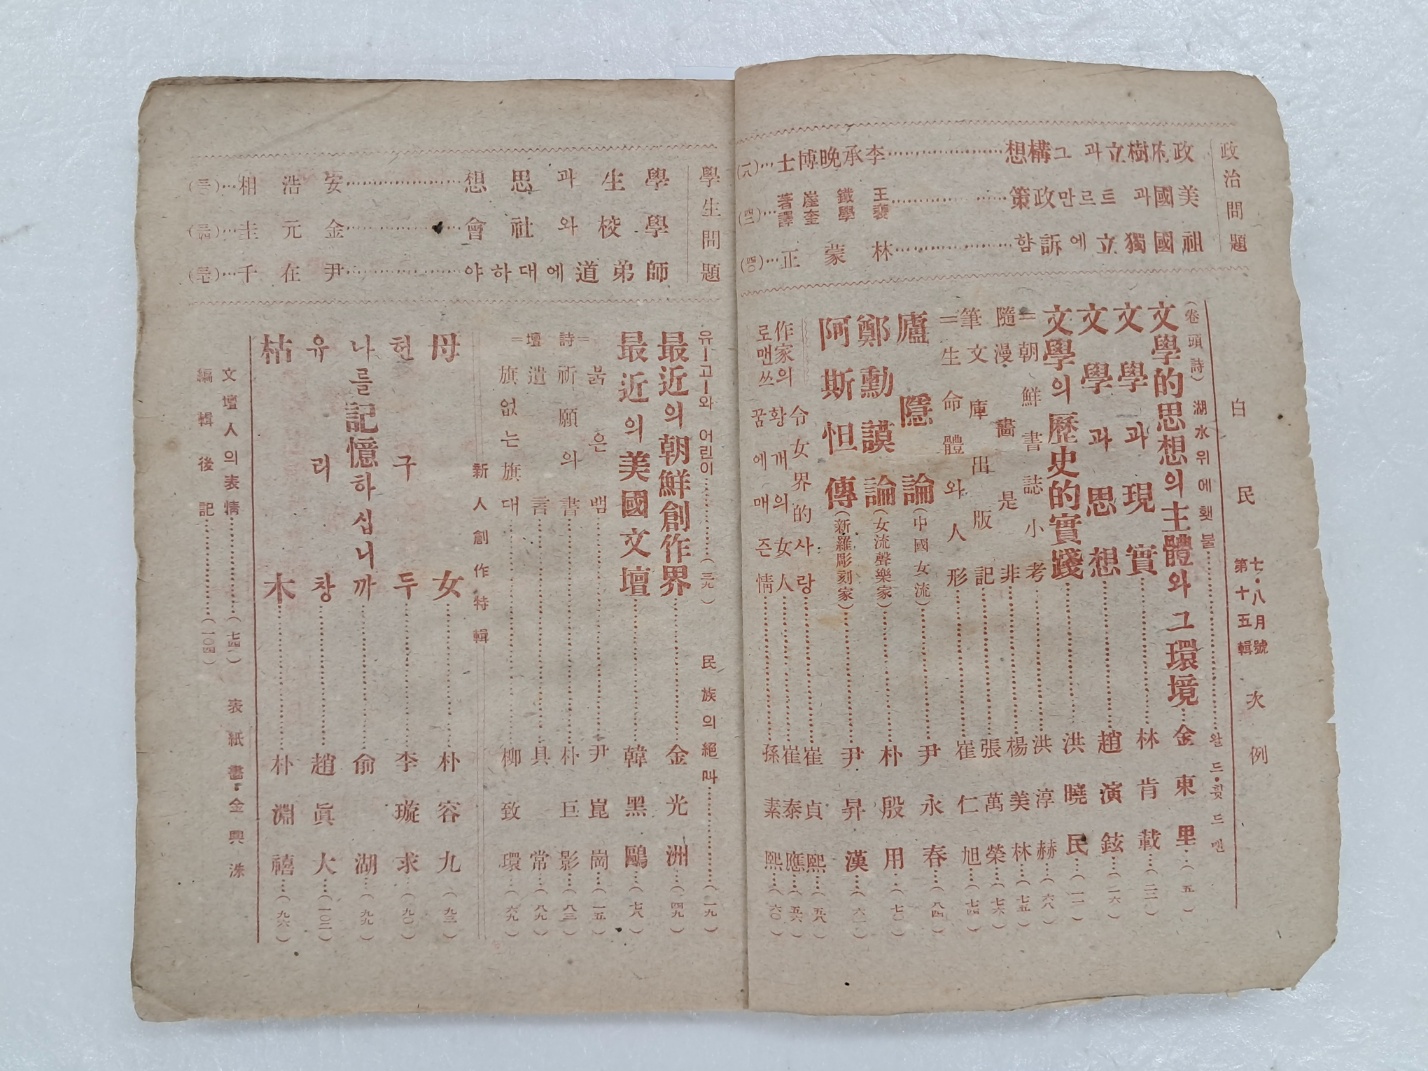 白民 七・八月號 第十五輯 次例
政治問題
李承晩博士…(六)
美國과 트르만政策
王鐵崖著
裵學奎譯
祖國獨立에 訴함………林蒙正
(卷頭詩) 湖水위에 횃불
文學的思想의 主體와 그 環境…金東里…(五)
文學과 現實…林肯載…(二二)
文學과 思想…趙演鉉…(一六)
文學의 歷史的實踐…洪曉民…(一一)
=朝鮮書誌小考…洪淳赫…(六八)
隨漫畵是非…楊美林…(七五)
筆文庫出版記…張萬榮…(七六)
=生命體와 人形…崔仁旭…(七四)
廬隱論(中國女流)…尹永春…(八四)
鄭勳謨論(女流聲樂家)…朴殷用…(七〇)
阿斯怛傳(新羅彫刻家)…尹昇漢
作家의 로맨쓰
令女界的 사랑…崔貞熙…(五八)
황개의 女人…崔泰應…(五六)
꿈에 매즌 情…孫素熙…(六〇)
學生問題
學生과 思想………安浩相…(三一)
學校와 社會………金元圭
師弟道에 대하야………尹在千
유ー고ー와 어린이
民族의 絕叫…(一九)
最近의 朝鮮創作界…金光洲…(四九)
最近의 美國文壇…韓黑鷗…(七八)
=붉은 뱀…尹崑崗…(一五)
詩 祈願의 書…朴巨影…(八三)
壇 遺言…具常…(八九)
=旗없는 旗대…柳致環…(六九)
新人創作特輯
母女…朴容九…(九三)
헌구두…李璇求…(九〇)
나를 記憶하십니까…俞湖…(九九)
유리창…趙眞大…(一〇二)
枯木…朴淵禧…(九六)
文壇人의 表情…(七四) 表紙畵・金興洙
編輯後記…(一〇四)